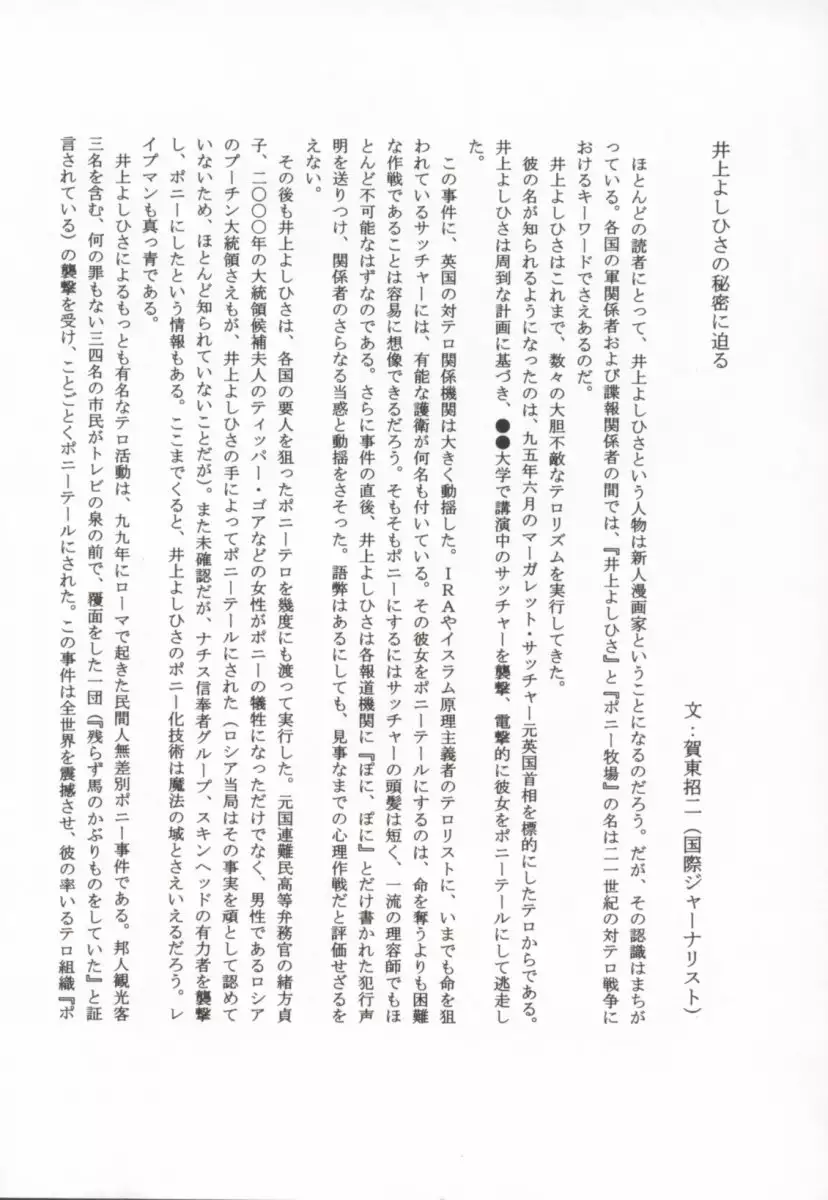 井上よしひさの秘密に迫る
文：賀東招二（国際ジャーナリスト）
　ほとんどの読者にとって、井上よしひさという人物は新人漫画家ということになるのだろう。だが、その認識はまちが
っている。各国の軍関係者および諜報関係者の間では、『井上よしひさ』と『ポニー牧場』の名は二一世紀の対テロ戦争に
おけるキーワードでさえあるのだ。
　井上よしひさはこれまで、数々の大胆不敵なテロリズムを実行してきた。
　彼の名が知られるようになったのは、九五年六月のマーガレット・サッチャー元英国首相を標的にしたテロからである。
井上よしひさは周到な計画に基づき、●●大学で講演中のサッチャーを襲撃、電撃的に彼女をポニーテールにして逃走し
た。
　この事件に、英国の対テロ関係機関は大きく動揺した。ＩＲＡやイスラム原理主義者のテロリストに、いまでも命を狙
われているサッチャーには、有能な護衛が何名も付いている。その彼女をポニーテールにするのは、命を奪うよりも困難
な作戦であることは容易に想像できるだろう。そもそもポニーにするにはサッチャーの頭髪は短く、一流の理容師でもほ
とんど不可能なはずなのである。さらに事件の直後、井上よしひさは各報道機関に『ぽに、ぽに』とだけ書かれた犯行声
明を送りつけ、関係者のさらなる当惑と動揺をさそった。語弊はあるにしても、見事なまでの心理作戦だと評価せざるを
えない。
　その後も井上よしひさは、各国の要人を狙ったポニーテロを幾度にも渡って実行した。元国連難民高等弁務官の緒方貞
子、二〇〇〇年の大統領候補夫人のティッパー・ゴアなどの女性がポニーの犠牲になっただけでなく、男性であるロシア
のプーチン大統領さえもが、井上よしひさの手によってポニーテールにされた（ロシア当局はその事実を頑として認めて
いないため、ほとんど知られていないことだが）。また未確認だが、ナチス信奉者グループ、スキンヘッドの有力者を襲撃
し、ポニーにしたという情報もある。ここまでくると、井上よしひさのポニー化技術は魔法の域とさえいえるだろう。レ
イプマンも真っ青である。
　井上よしひさによるもっとも有名なテロ活動は、九九年にローマで起きた民間人無差別ポニー事件である。邦人観光客
三名を含む、何の罪もない三四名の市民がトレビの泉の前で、覆面をした一団（『残らず馬のかぶりものをしていた』と証
言されている）の襲撃を受け、ことごとくポニーテールにされた。この事件は全世界を震撼させ、彼の率いるテロ組織『ポ